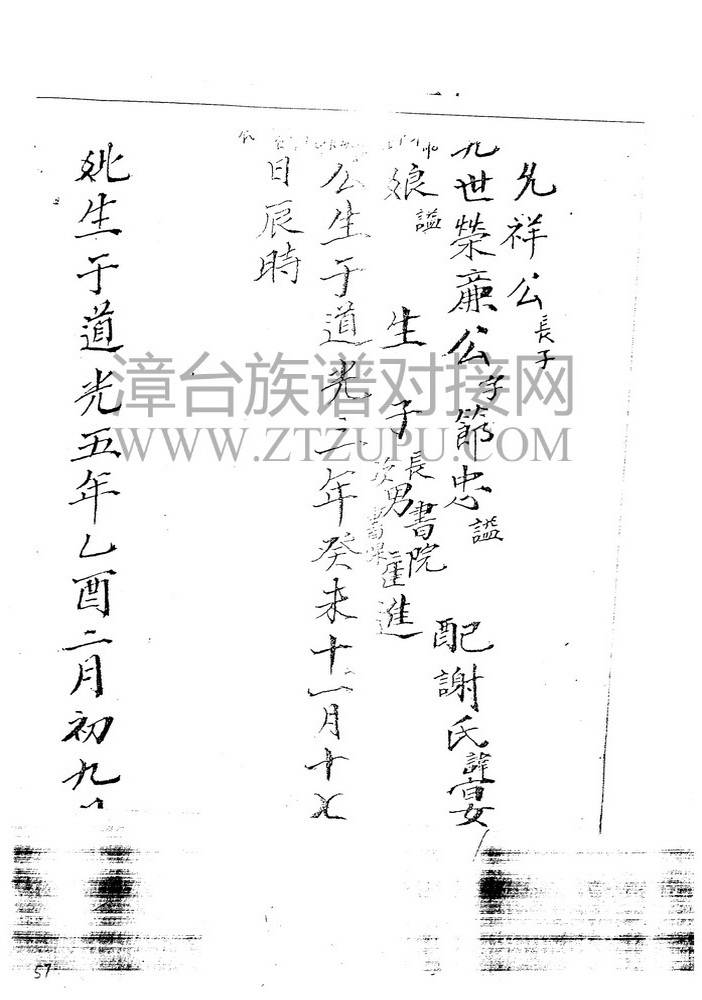 允祥公長子
九世榮廉公字節忠諡 配謝氏諱宴
娘諡 生子長男書院
次書 進
公生于道光三年癸未十一月十
日辰時
妣生于道光五年乙酉二月初九
漳台族谱对接网
WWW.ZTZUPU.COM
57